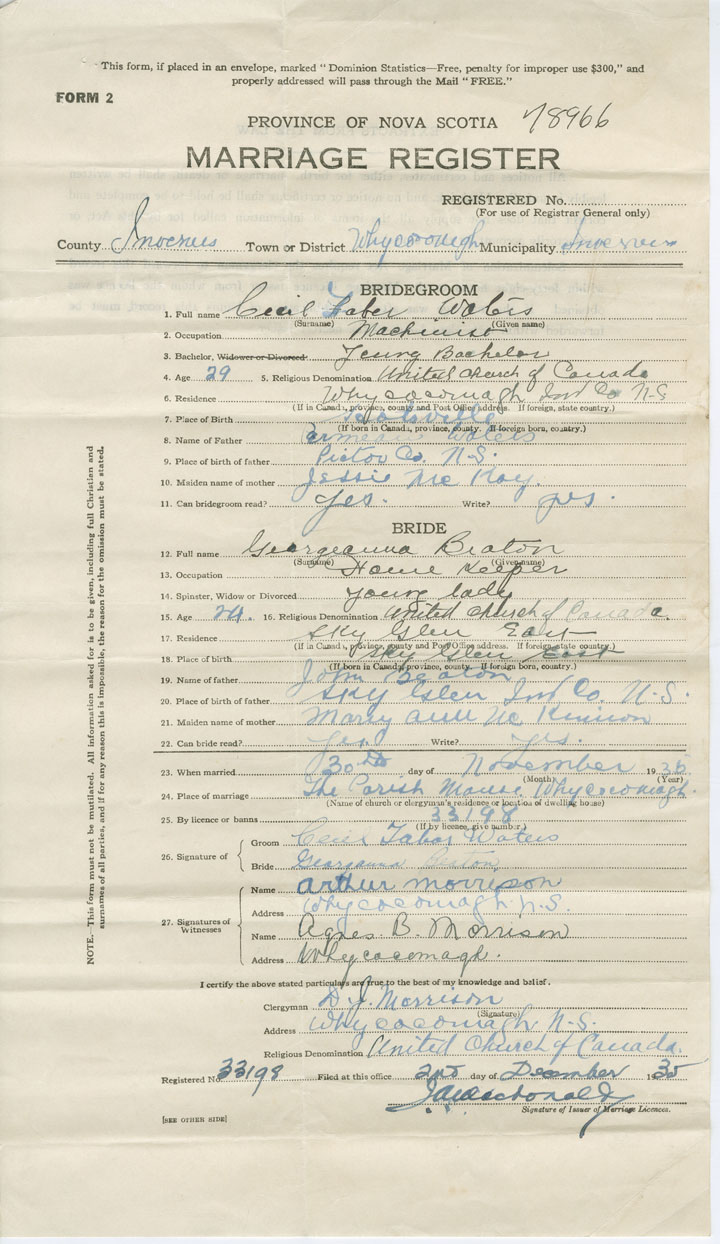 This form, if placed in an envelope, marked "Dominion Statistics—Free, penalty for improper use $300," and
properly addressed will pass through the Mail "FREE."
FORM 2
PROVINCE OF NOVA SCOTIA 78966
MARRIAGE REGISTER
REGISTERED No.
(For use of Registrar General only)
County Inverness Town or District Whycocomagh Municipality Inverness
BRIDEGROOM
1. Full name Cecil Faber Waters
(Surname) (Given name)
2. Occupation Machinist
3. Bachelor, Widower or Divorced Young Bachelor
4. Age 29 5. Religious Denomination United Church of Canada
6. Residence Whycocomagh Inv Co N-S
(If in Canada, province, county and Post Office address. If foreign, state country.)
7. Place of Birth
(If born in Canada, province, county. If foreign born, country.)
8. Name of Father Waters
9. Place of birth of father Pictou Co. N.S.
10. Maiden name of mother Jessie Mc Kay.
11. Can bridegroom read? yes. Write? yes.
BRIDE
12. Full name Georgeanna Beaton
(Surname) (Given name)
13. Occupation House Keeper
14. Spinster, Widow or Divorced young lady
15. Age 24. 16. Religious Denomination United Church of Canada.
17. Residence Sky Glen East
(If in Canada, province, county and Post Office address. If foreign, state country.)
18. Place of birth Sky Glen East
(If born in Canada, province, county. If foreign born, country.)
19. Name of father John Beaton
20. Place of birth of father Sky Glen Inv Co. N.S.
21. Maiden name of mother Mary Ann Mc Kinnon
22. Can bride read? Yes. Write? yes.
23. When married 30th day of November 1935
(Month) (Year)
24. Place of marriage The Parish Manse, Whycocomagh.
(Name of church or clergyman's residence or location of dwelling house)
25. By licence or banns 33198
(If by licence, give number)
26. Signature of Groom Cecil Tabor Waters
Bride Georgeanna Beaton
27. Signatures of Witnesses Name Arthur Morrison
Address Whycocomagh. N.S.
Name Agnes B. Morrison
Address Whycocomagh.
I certify the above stated particulars are true to the best of my knowledge and belief.
Clergyman D. J. Morrison
(Signature)
Address Whycocomagh N-S.
Religious Denomination United Church of Canada.
Registered No. 33198 Filed at this office 2nd day of December 1935
J A Macdonald
Signature of Issuer of Marriage Licences.
[SEE OTHER SIDE]
NOTE.—This form must not be mutilated. All information asked for is to be given, including full Christian and
surnames of all parties, and if for any reason this is impossible, the reason for the omission must be stated.